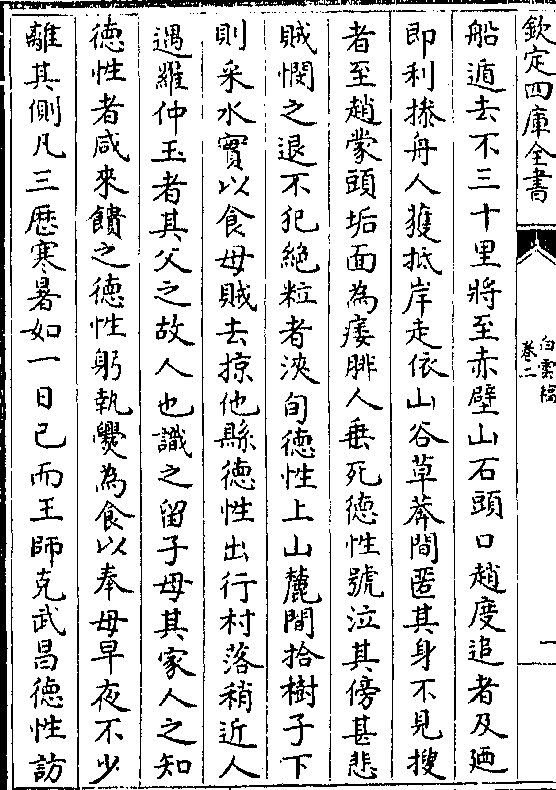 欽定四庫全書
白雲稿
卷二
一
船遁去不三十里將至赤壁山石頭口趙度追者及廼
即利搽舟人獲抵岸走依山谷草莽間匿其身不見搜
者至趙蒙頭垢面為痿腓人垂死徳性號泣其傍甚悲
賊憫之退不犯絶粒者浹旬徳性上山麓間拾樹子下
則采水實以食母賊去掠他縣徳性出行村落稍近人
遇羅仲玉者其父之故人也識之留子母其家人之知
徳性者咸來饋之徳性躬執爨為食以奉母早夜不少
離其側凡三歴寒暑如一日已而王師克武昌徳性訪